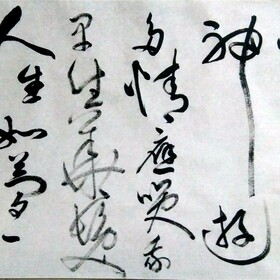 神游
多情應笑我
早生華髮
人生如夢一